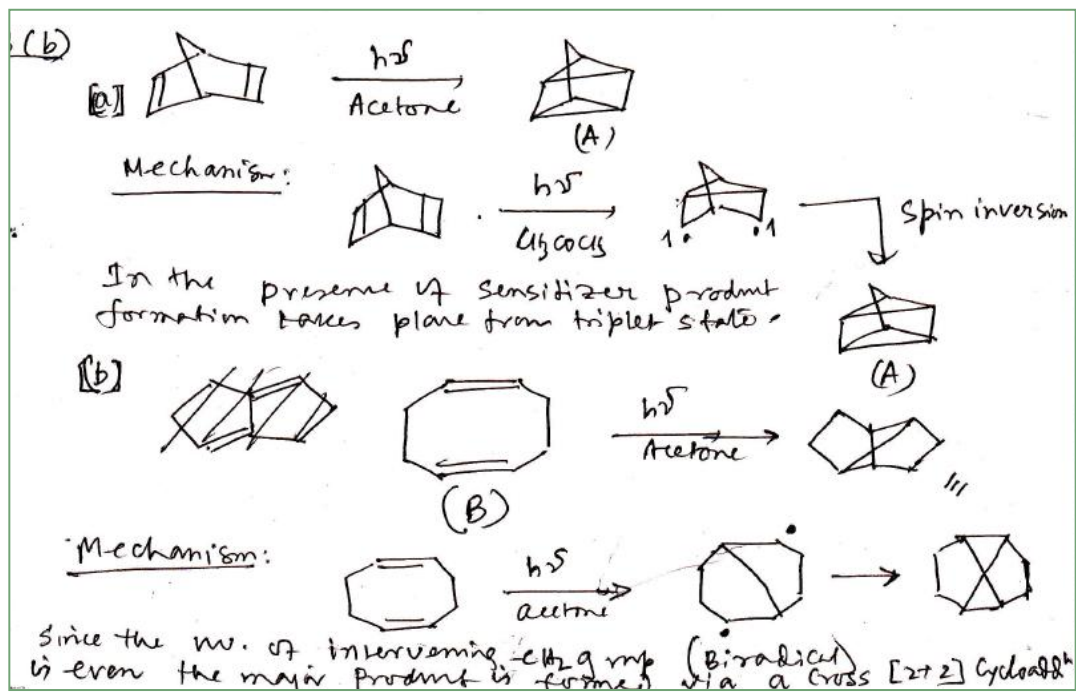 (b)
[a] hν
Acetone
(A)
Mechanism:
hν
CH3COCH3
1 . . 1
Spin inversion
In the presence of sensitizer product
formation takes place from triplet state.
(A)
[b] hν
Acetone
(B)
Mechanism:
hν
acetone
(Biradical)
Since the no. of intervening -CH2 grp
is even the major Product is formed via a Cross [2+2] Cycloaddn